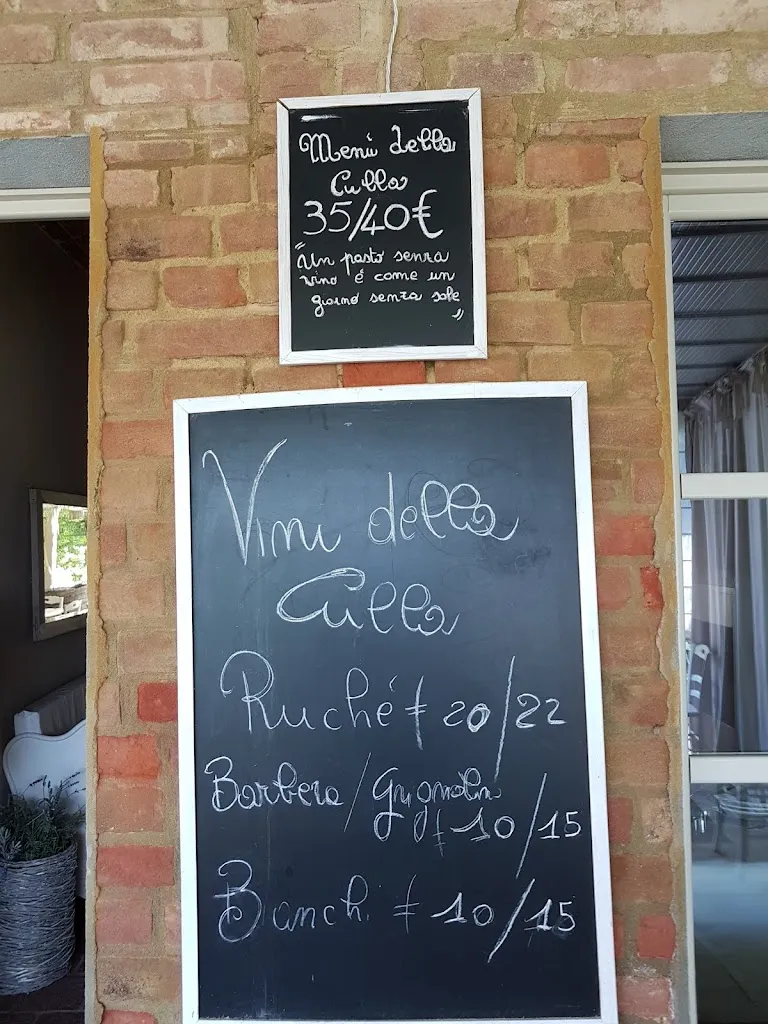 Menù della
Culla
35/40€
"Un pasto senza
vino è come un
giorno senza sole
"
Vini della
Culla
Ruché € 20/22
Barbera / Grignolin
€ 10/15
Bianchi € 10/15